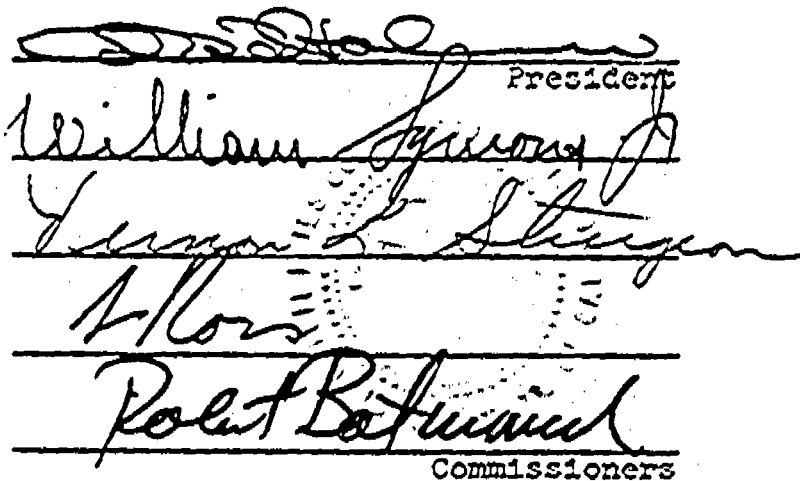 President
William Symons Jr
Vernon L Sturgeon
L Ross
Robert Batinovich
Commissioners